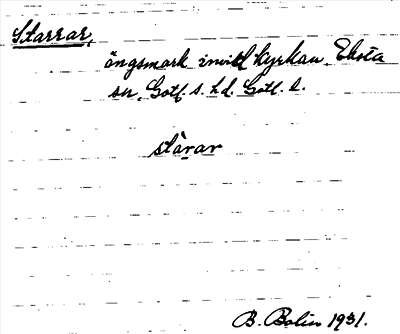 Starrar,
ängsmark invid kyrkan, Eksta
sn, Gotl. s. hd. Gotl. l.
stàrar
B. Bolin 1931.